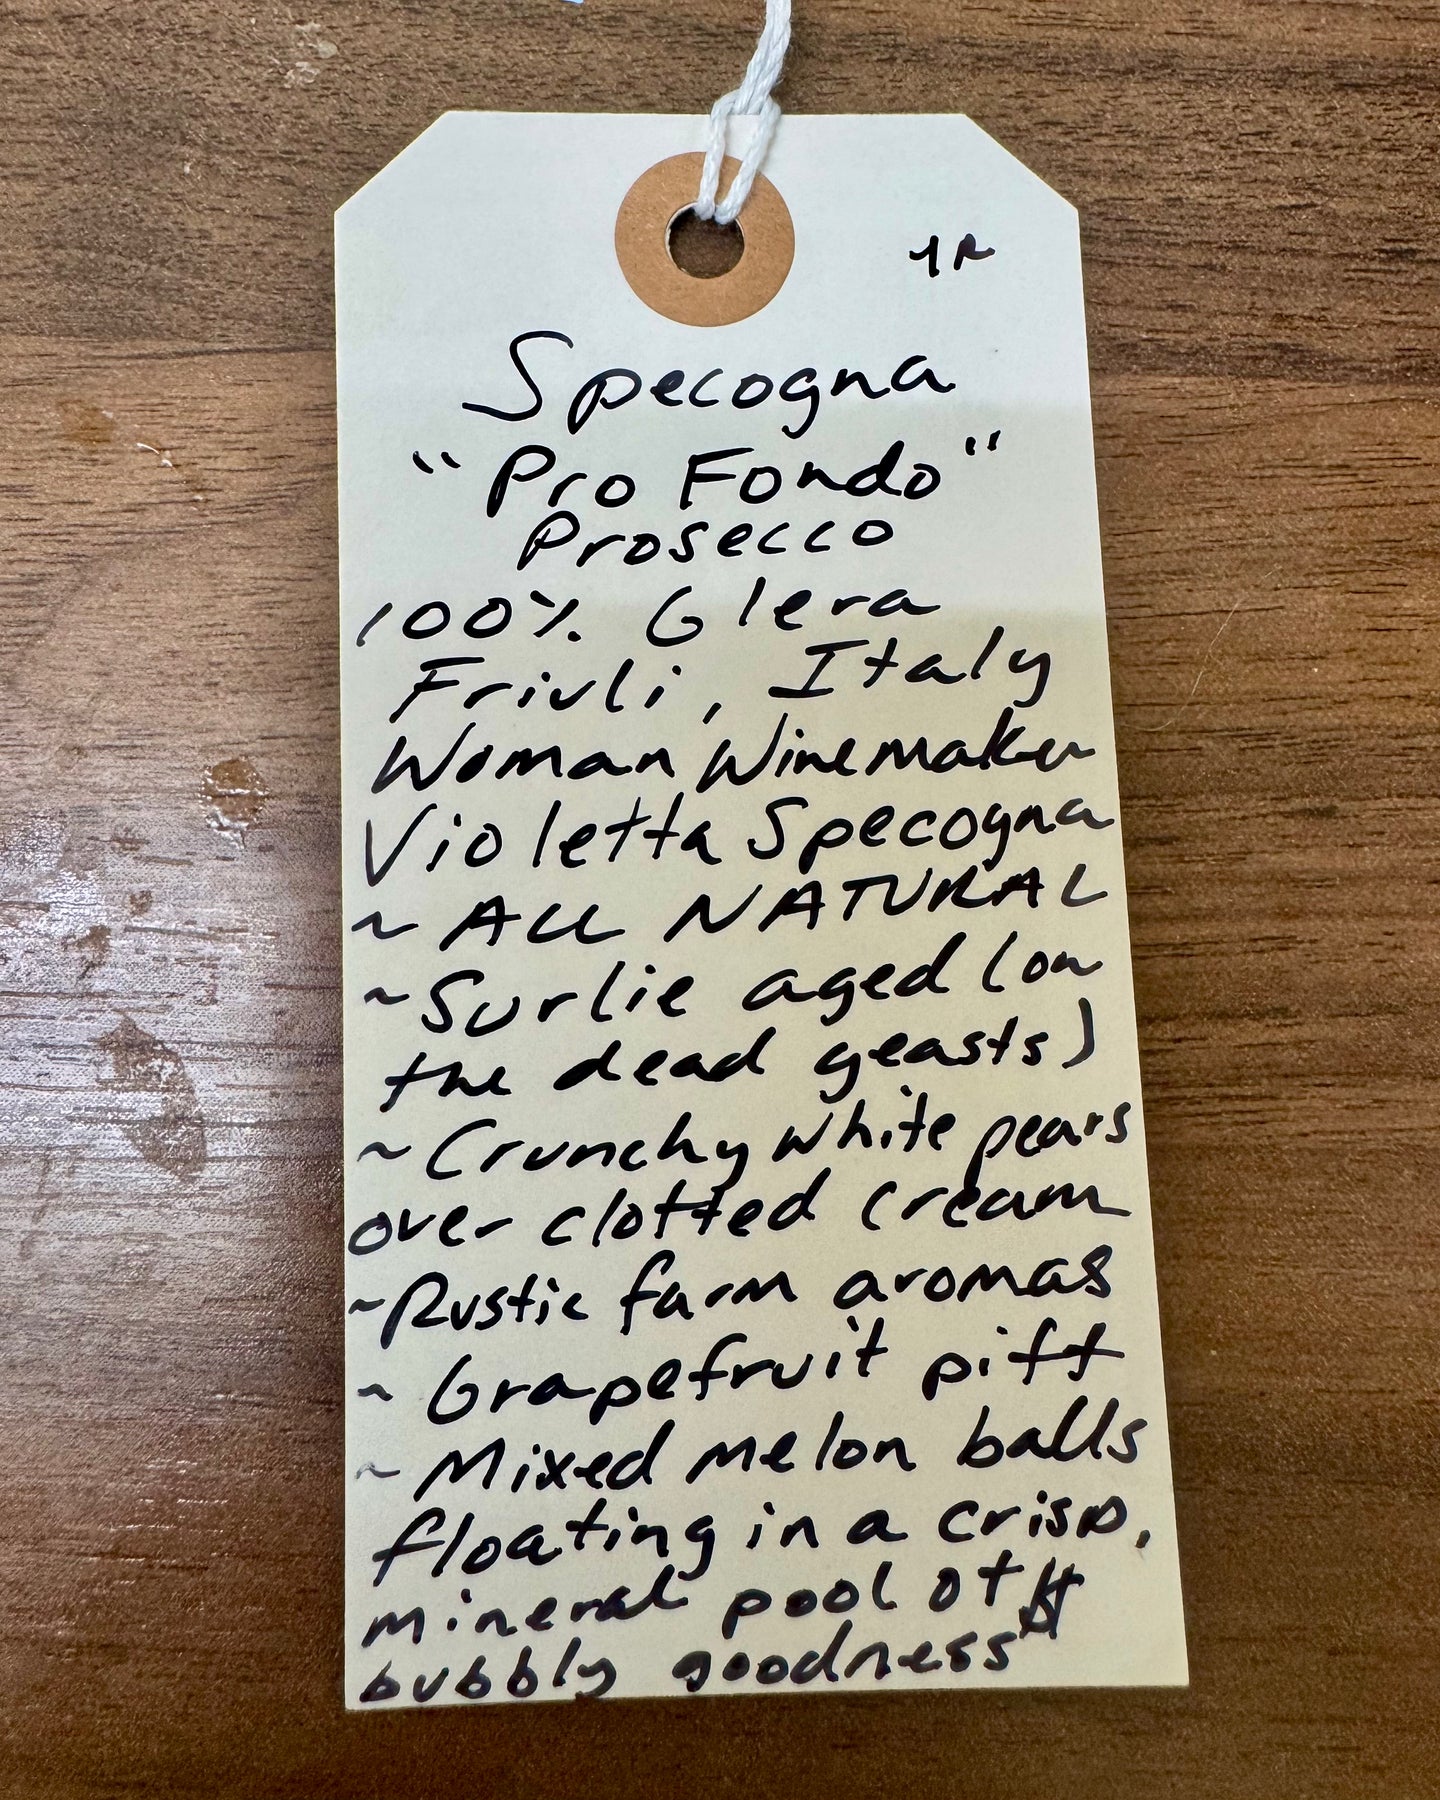 Specogna
"Pro Fondo"
Prosecco
100% Glera
Friuli, Italy
Woman Winemaker
Violetta Specogna
~ ALL NATURAL
~ Surlie aged (on
the dead yeasts)
~ Crunchy white pears
over clotted cream
~ Rustic farm aromas
~ Grapefruit pith
~ Mixed melon balls
floating in a crisp,
mineral pool of
bubbly goodness